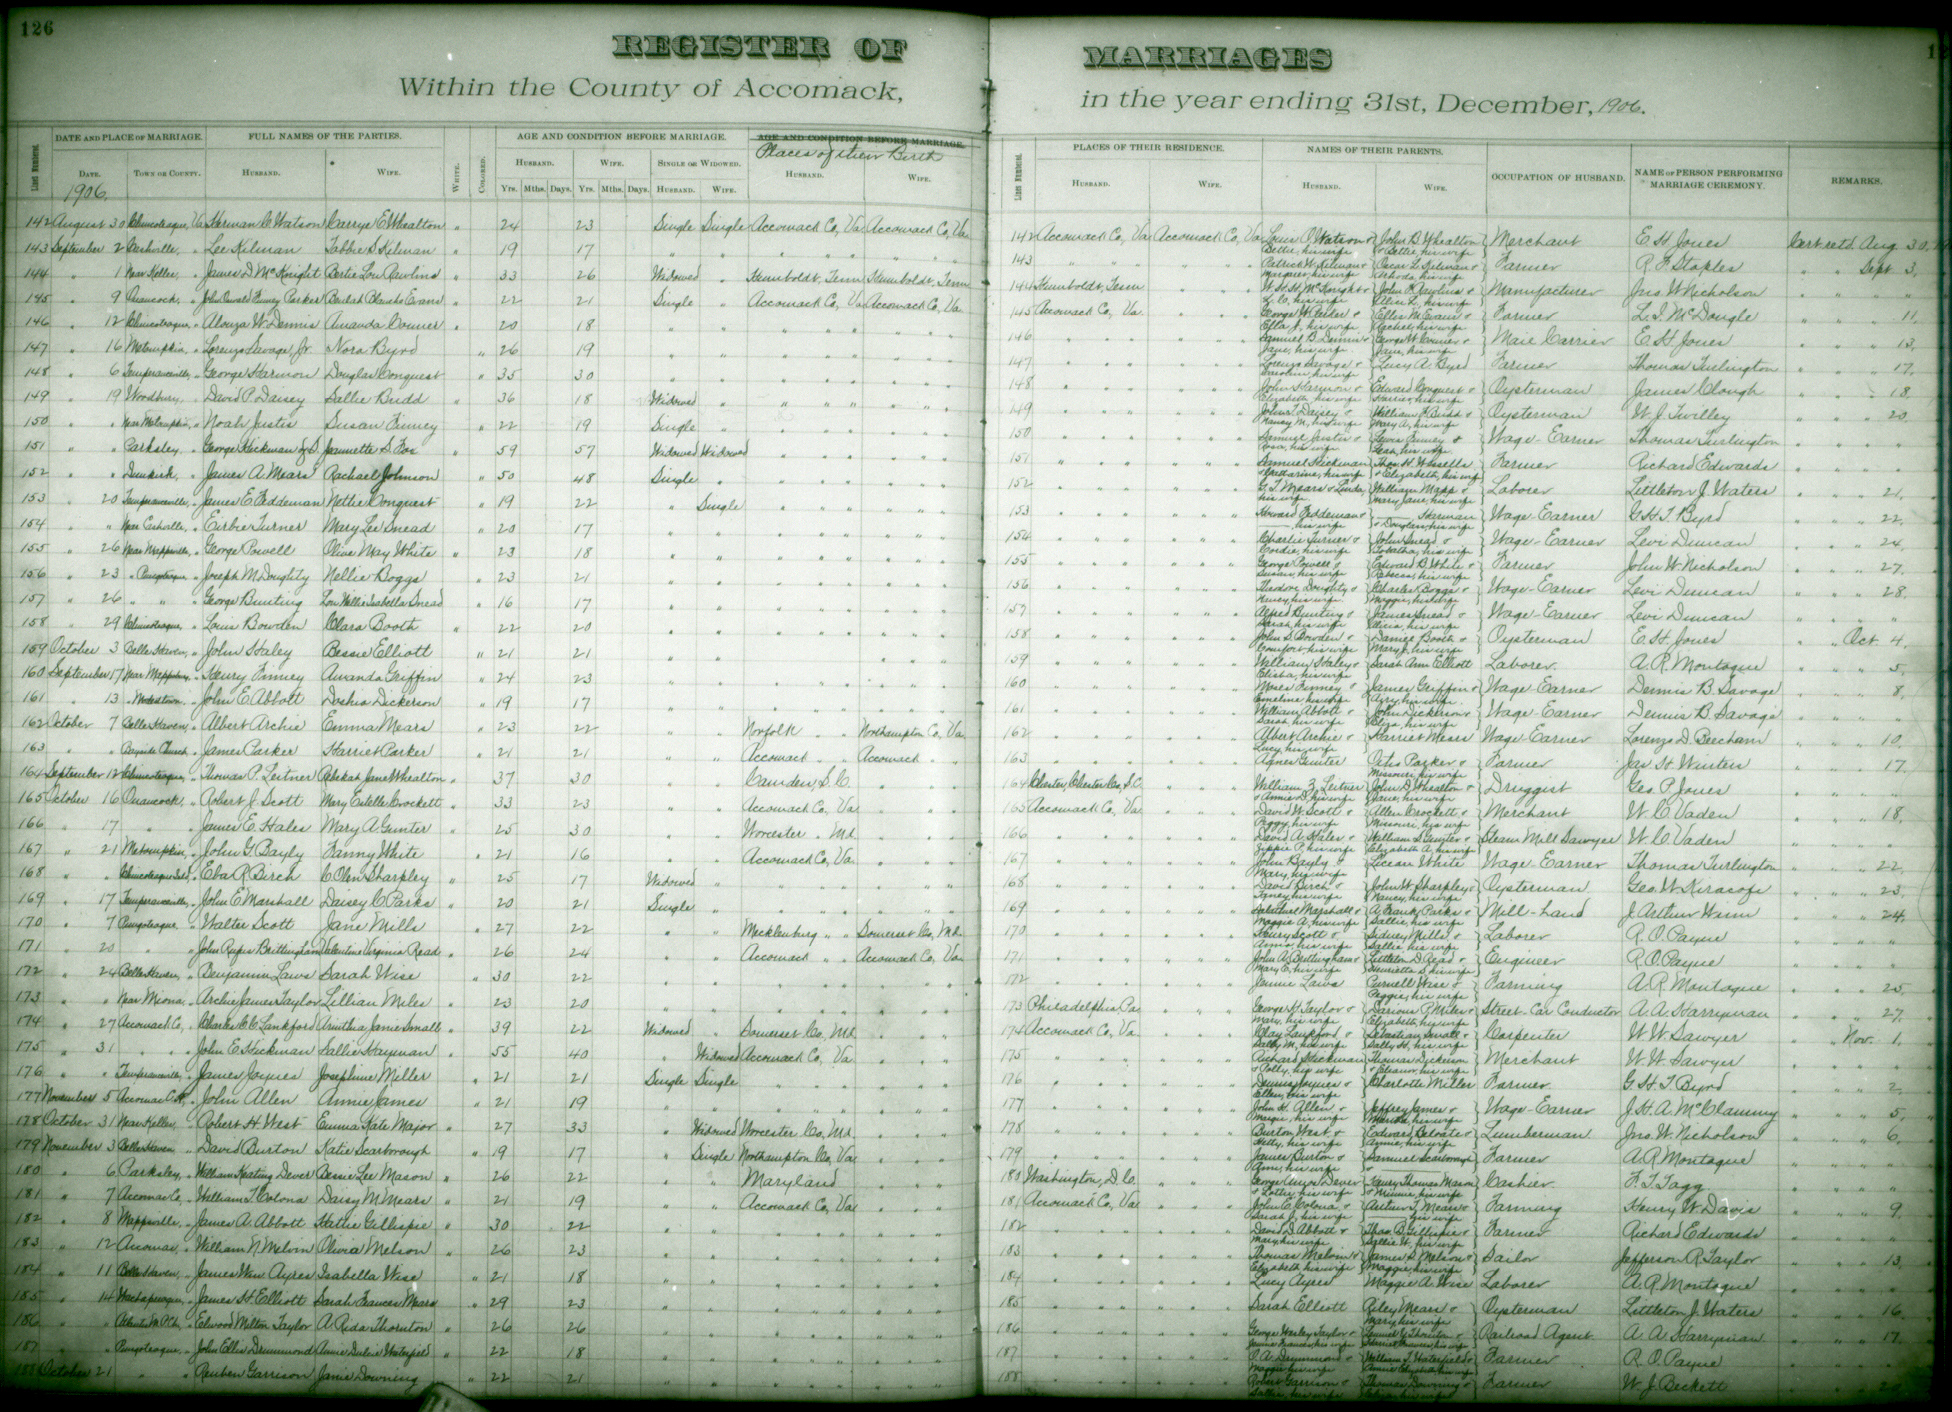 126
REGISTER OF MARRIAGES
Within the County of Accomack, in the year ending 31st, December, 1906.
Lines Numbered. DATE AND PLACE OF MARRIAGE. FULL NAMES OF THE PARTIES. WHITE. COLORED. AGE AND CONDITION BEFORE MARRIAGE. AGE AND CONDITION BEFORE MARRIAGE. Places of their Birth
Lines Numbered. PLACES OF THEIR RESIDENCE. NAMES OF THEIR PARENTS. OCCUPATION OF HUSBAND. NAME OF PERSON PERFORMING MARRIAGE CEREMONY. REMARKS.
DATE. TOWN OR COUNTY. HUSBAND. WIFE. HUSBAND. WIFE. SINGLE OR WIDOWED. HUSBAND. WIFE.
HUSBAND. WIFE. HUSBAND. WIFE.
1906. Yrs. Mths. Days. Yrs. Mths. Days. HUSBAND. WIFE.
142 August 30 Chincoteague, Va Herman C Watson Carrye E Whealton " 24 23 Single Single Accomack Co, Va Accomack Co, Va
143 September 2 " Lee Kilman Tabbie S Kilman " 19 17
144 " 1 Near Keller, " James D McKnight Bertie Lou Rawlins " 33 26 Widowed " Humboldt, Tenn Humboldt, Tenn
145 " 9 Onancock, " John Finney Parker Beulah Blanche Evans " 22 21 Single " Accomack Co, Va Accomack Co, Va
146 " 12 Chincoteague, " Alonza W Dennis Amanda Conner " 20 18
147 " 16 Metompkin, " Lorenzo Savage, Jr Nora Byrd " 26 19
148 " 6 Temperanceville, " George Harmon Douglas Conquest " 35 30
149 " 19 Woodbury, " David P. Daisey Sallie Budd " 36 18 Widowed
150 " " Near Metompkin, " Noah Justis Susan Finney " 22 19 Single
151 " " Parksley, " George Hickman of S. Jeannette S. Fox " 59 57 Widowed Widowed
152 " " " James A. Mears Rachael Johnson " 50 48 Single "
153 " 20 Temperanceville, " James E Feddeman Nettie Conquest " 19 22 " Single
154 " " Near Cashville, " Eirbie Turner Mary Lee Snead " 20 17
155 " 26 Near Mappsville, " George Powell Olive May White " 23 18
156 " 23 " Pungoteague " Joseph M Doughty Nellie Boggs " 23 21
157 " 26 " " George Bunting Lou Isabella Snead " 16 17
158 " 29 Chincoteague, " Louis Bowden Clara Booth " 22 20
159 October 3 Belle Haven, " John Haley Bessie Elliott " 21 21
160 September 17 " Henry Finney Amanda Griffin " 24 23
161 " 13 " Modestown, " John E Abbott Doshia Dickerson " 19 17
162 October 7 Belle Haven, " Albert Archie Emma Mears " 23 22 " " Norfolk " " Northampton Co, Va
163 " " Bayside Church " James Parker Harriet Parker " 21 21 " " Accomack " " Accomack "
164 September 12 Chincoteague, " Thomas P. Leitner Rebekah Jane Whealton " 37 30 " " Camden, S.C.
165 October 16 Onancock, " Robert J. Scott Mary Estelle Crockett " 33 23 " " Accomack Co, Va
166 " 17 " " James E. Hales Mary A Gunter " 25 30 " " Worcester " Md
167 " 21 Metompkin, " John G. Bayly Fanny White " 21 16 " " Accomack Co, Va
168 " " Chincoteague Isld, " Eba R Birch Olen Sharpley " 25 17 Widowed "
169 " 17 Temperanceville, " John E Marshall Daisey C Parks " 20 21 Single "
170 " 7 Pungoteague " Walter Scott Jane Mills " 27 22 " " Mecklenburg " " Somerset Co, Md.
171 " 20 " " John Roger Brittingham Valentine Virginia Read " 26 24 " " Accomack " " Accomack Co, Va
172 " 24 Belle Haven, " Benjamin Laws Sarah Wise " 30 22
173 " " Near Miona, " Archie James Taylor Lillian Miles " 23 20
174 " 27 Accomac Co, " Charles C. Lankford Arinthia Janie Small " 39 22 Widowed " Somerset Co, Md.
175 " 31 " " John E Hickman Sallie Hayman " 55 40 " Widowed Accomack Co, Va
176 " " Temperanceville, " James Joynes Josephine Miller " 21 21 Single Single
177 November 5 Accomac C.H, " John Allen Annie James " 21 19
178 October 31 Near Keller, " Robert H. West Emma Kate Major " 27 33 " Widowed Worcester Co, Md.
179 November 3 Belle Haven " David Burton Katie Scarborough " 19 17 " Single Northampton Co, Va
180 " 6 Parksley, " William Keating Dever Bessie Lee Mason " 26 22 " " Maryland
181 " 7 Accomac Co, " William T Colona Daisy M. Mears " 21 19 " " Accomack Co, Va
182 " 8 Mappsville, " James A. Abbott Hattie Gillispie " 30 22
183 " 12 Accomac, " William N Melvin Olivia Melson " 26 23
184 " 11 Belle Haven, " James Wm Ayres Isabella Wise " 21 18
185 " 14 Wachapreague, " James H. Elliott Sarah Frances Mears " 29 23
186 " " " Elwood Milton Taylor A Rida Thornton " 26 26
187 " " Pungoteague, " John Ellis Drummond Annie Waterfield " 22 18
188 October 21 " " Reuben Garrison Janie Downing " 22 21
142 Accomack Co, Va Accomack Co, Va Louis J Watson & Bettie, his wife John D Whealton & Bettie, his wife Merchant E. H. Jones Cert. retd. Aug. 30,
143 Patrick W. Kilman & Margaret, his wife Oscar L. Kilman & Rhoda, his wife Farmer R. F. Staples " " Sept 3,
144 Humboldt, Tenn W. H. H. McKnight & L. C., his wife John F. Rawlins & Alice L., his wife Manufacturer Jno. W Nicholson
145 Accomack Co, Va George W. Parker & Ella J., his wife Ellis M. Evans & Rachel, his wife Farmer L. I. McDougle " " " 11,
146 Samuel B. Dennis & Jane, his wife George W. Conner & Jane, his wife Mail Carrier E. H. Jones " " " 13,
147 Lorenzo Savage & Caroline, his wife Lucy A Byrd Farmer Thomas Turlington " " " 17,
148 John Harmon & Elizabeth, his wife Edward Conquest & Harriet, his wife Oysterman James Clough " " " 18,
149 John T. Daisey & Nancy M., his wife William J. Budd & Mary A., his wife Oysterman W. J. Twilley " " " 20,
150 Samuel Justis & his wife Lewis Finney & Leah, his wife Wage-Earner Thomas Turlington
151 Samuel Hickman & Catharine, his wife Thos. H. Wessells & Elizabeth, his wife Farmer Richard Edwards
152 G. T. Mears & Linda, his wife William Mapp & Mary Jane, his wife Laborer Littleton J. Waters " " " 21,
153 Howard Feddeman & his wife Harman & Douglass, his wife Wage-Earner G. H. T. Byrd " " " 22,
154 Charlie Turner & Cordie, his wife John Snead & Tabitha, his wife Wage-Earner Levi Duncan " " " 24,
155 George Powell & Susan, his wife Edward B. White & Rebecca, his wife Farmer John W Nicholson " " " 27,
156 Theodore Doughty & Nancy, his wife Charles Boggs & Maggie, his wife Wage-Earner Levi Duncan " " " 28,
157 Alfred Bunting & Sarah, his wife James Snead & his wife Wage-Earner Levi Duncan
158 John S. Bowden & Comfort, his wife Daniel Booth & Mary J., his wife Oysterman E. H. Jones " " Oct 4,
159 William Haley & Elisha, his wife Sarah Ann Elliott Laborer A. R. Montague " " " 5,
160 Moses Finney & Emeline, his wife James Griffin & his wife Wage-Earner Dennis B. Savage " " " 8,
161 William Abbott & Sarah, his wife John Dickerson & Eliza, his wife Wage-Earner Dennis B. Savage
162 Albert Archie & Lucy, his wife Harriet Mears Wage-Earner Lorenzo D. Beecham " " " 10,
163 Agnes Gunter Parker & Missouri, his wife Farmer Jas. H. Winters " " " 17,
164 Chester, Chester Co, S.C. William Z. Leitner & Annie D., his wife John D. Whealton & Jane, his wife Druggist Geo. P. Jones
165 Accomack Co, Va David W. Scott & Peggy, his wife Allen Crockett & Missouri, his wife Merchant W. C. Vaden " " " 18,
166 David A. Hales & Zippie P., his wife William S. Gunter & Elizabeth A., his wife Steam Mill Sawyer W. C. Vaden
167 John Bayly & Mary, his wife White Wage Earner Thomas Turlington " " " 22,
168 David Birch & his wife John W. Sharpley & Nancy, his wife Oysterman Geo. W. Kiracofe " " " 23,
169 Marshall & Maggie A., his wife A. Frank Parks & Sallie, his wife Mill-hand J. Arthur Winn " " " 24,
170 Henry Scott & Annie, his wife Sidney Mills & Sallie, his wife Laborer R. O. Payne
171 John A. Brittingham & Mary C., his wife Littleton D. Read & Henrietta S., his wife Engineer R. O. Payne
172 Jennie Laws Purnell Wise & Peggie, his wife Farming A. R. Montague " " " 25,
173 Philadelphia, Pa George H. Taylor & Mary, his wife P. Miles & Elizabeth, his wife Street Car Conductor A. A. Harryman " " " 27,
174 Accomack Co, Va Clay Lankford & Sally M., his wife Sebastian Small & Sally H., his wife Carpenter W. W. Sawyer " " Nov. 1,
175 Richard Hickman & Polly, his wife Thomas Dickerson & Eleanor, his wife Merchant W. W. Sawyer
176 Dennis Joynes & Ellen, his wife Charlotte Miller Farmer G. H. T. Byrd " " " 2,
177 John H. Allen & Margie, his wife Jeffrey James & Martha, his wife Wage-Earner J. H. A. McClammy " " " 5,
178 Burton West & Hetty, his wife Edward Belote & Annie, his wife Lumberman Jno. W. Nicholson " " " 6,
179 James Burton & Annie, his wife Samuel Scarborough & Farmer A. R. Montague
180 Washington, D.C. George Dever & Lottie, his wife Thomas Mason & Minnie, his wife Cashier F. T. Tagg
181 Accomack Co, Va John E. Colona & Sarah J., his wife Arthur T. Mears & his wife Farming Henry W. Davis " " " 9,
182 David D. Abbott & Mary, his wife Thos. B. Gillispie & Sallie W., his wife Farmer Richard Edwards
183 Thomas Melvin & Elizabeth, his wife James S. Melson & Maggie, his wife Sailor Jefferson R. Taylor " " " 13,
184 Lucy Ayres Maggie A. Wise Laborer A. R. Montague
185 Sarah Elliott Riley Mears & Mary, his wife Oysterman Littleton J. Waters " " " 16,
186 George Wesley Taylor & Jennie Frances, his wife Thornton & his wife Railroad Agent A. A. Harryman " " " 17,
187 O. A. Drummond & Maggie, his wife William T. Waterfield & Annie, his wife Farmer R. O. Payne
188 Robert Garrison & Sallie, his wife Thomas Downing & his wife Farmer W. J. Beckett